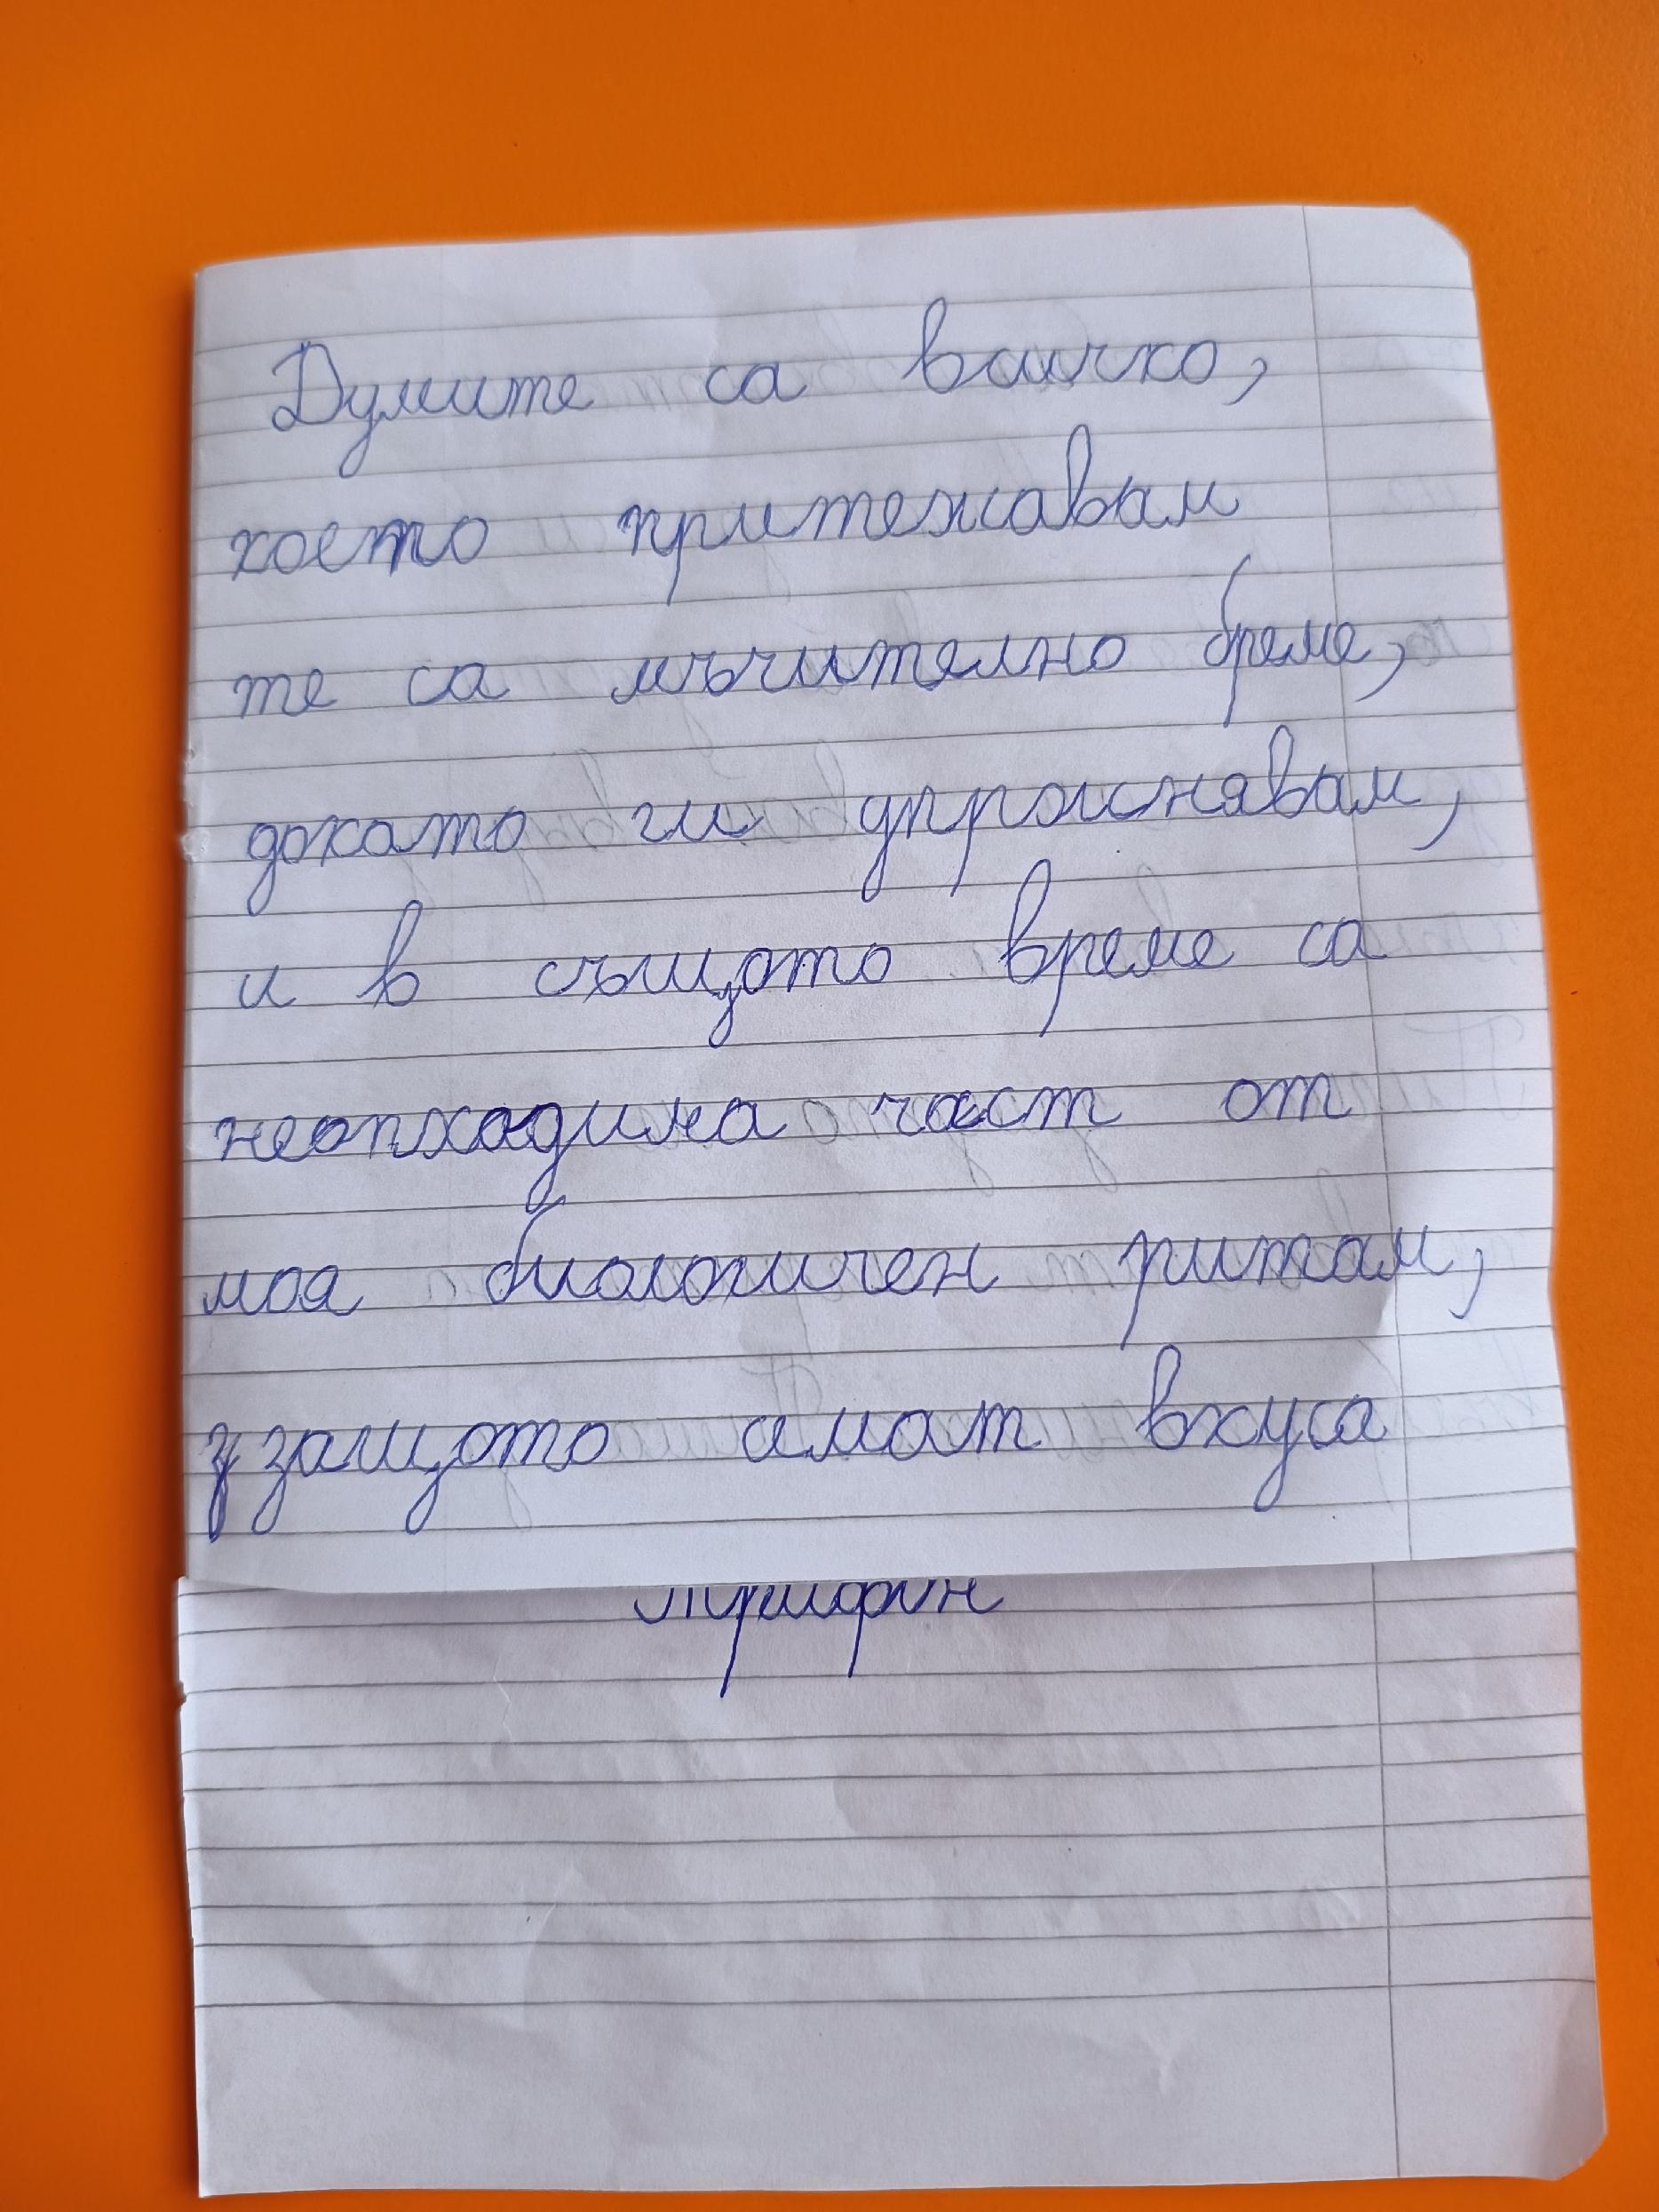 Думите са всичко,
което притежавам
те са мъчително бреме,
докато ги упражнявам,
и в същото време са
неопходима част от
моя биологичен ритам,
защото имат вкуса